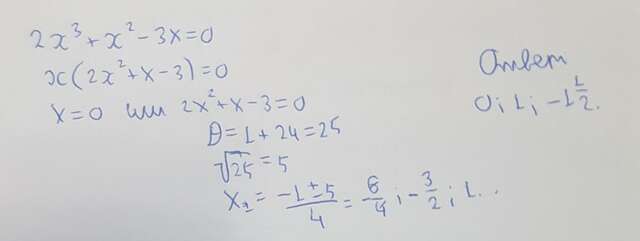 2x³+x²-3x=0
x(2x²+x-3)=0
x=0 или 2x²+x-3=0
D=1+24=25
√25=5
x₁=(-1±5)/4=6/4;-3/2;1..
Ответ
0;1;-1 1/2.